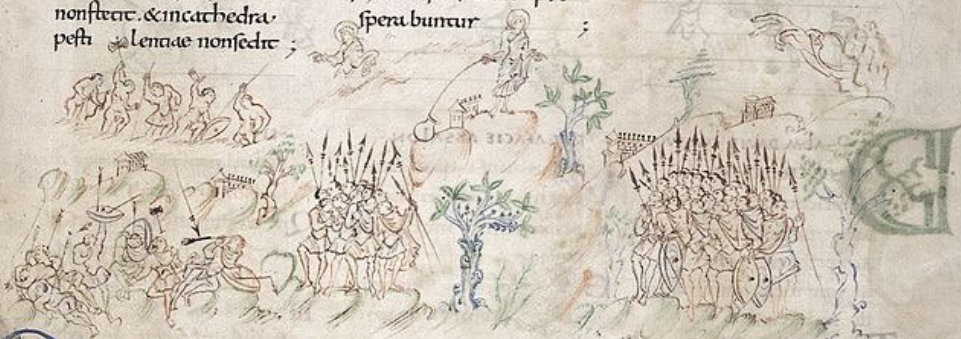 nonstetit . & incathedra .
pesti lentiae nonsedit ;
spera buntur
;